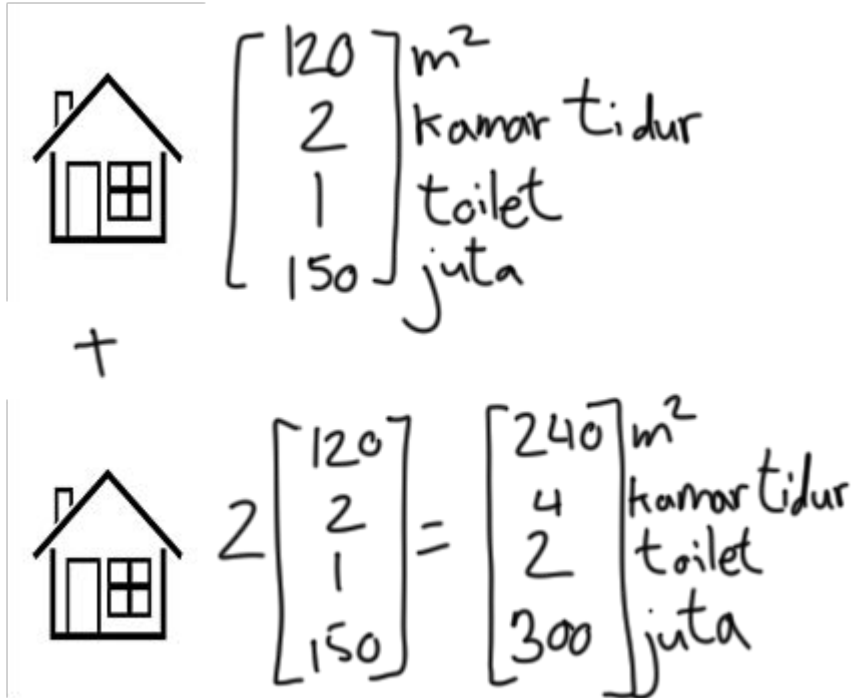 120 m²
2 kamar tidur
1 toilet
150 juta
+
2 [120 2 1 150] = [240 4 2 300]
m²
kamar tidur
toilet
juta